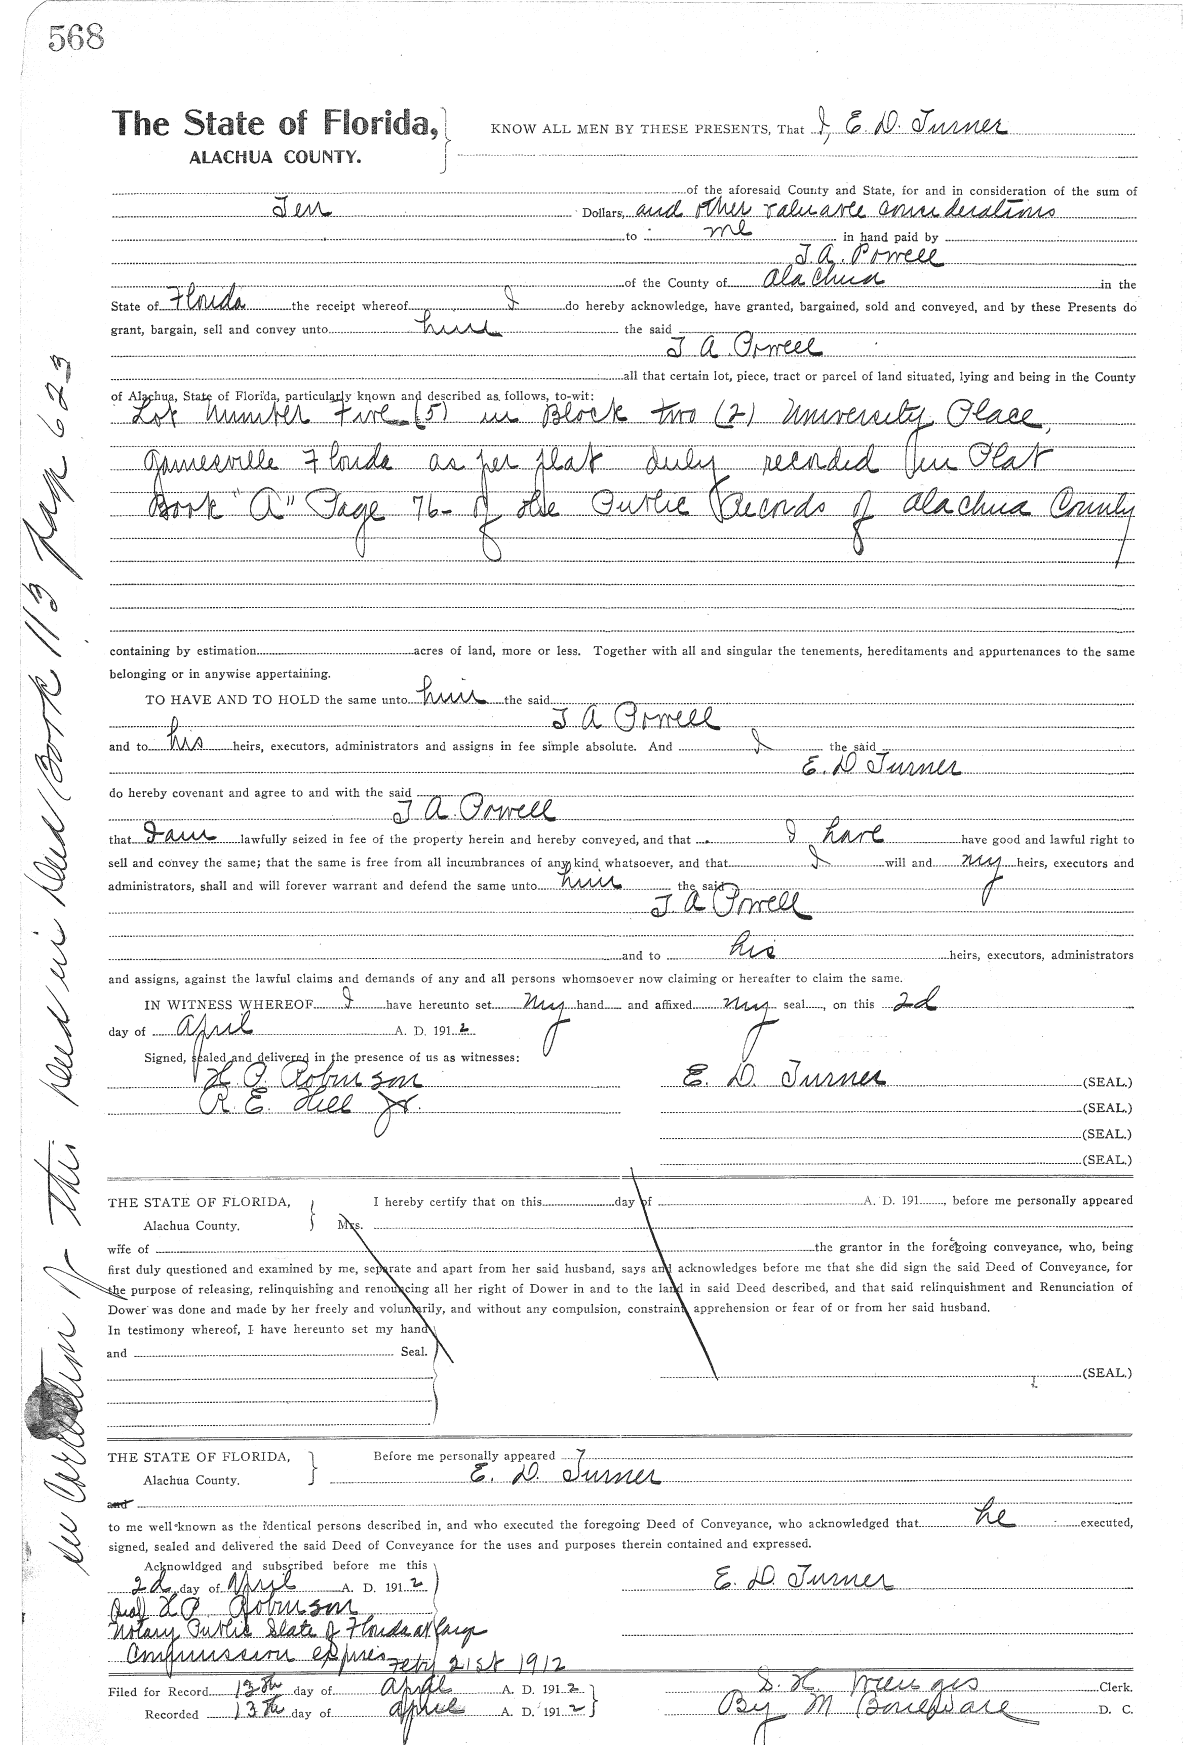 568
The State of Florida,
ALACHUA COUNTY.
KNOW ALL MEN BY THESE PRESENTS, That I, E. D. Turner
of the aforesaid County and State, for and in consideration of the sum of
Ten Dollars, and other valuable considerations
to me in hand paid by
J. A. Powell
of the County of Alachua in the
State of Florida the receipt whereof I do hereby acknowledge, have granted, bargained, sold and conveyed, and by these Presents do
grant, bargain, sell and convey unto him the said
J A. Powell
all that certain lot, piece, tract or parcel of land situated, lying and being in the County
of Alachua, State of Florida, particularly known and described as follows, to-wit:
Lot Number Five (5) in Block two (2) University Place,
Gainesville Florida as per plat duly recorded in Plat
Book "A" Page 76- of the Public Records of Alachua County
containing by estimation acres of land, more or less. Together with all and singular the tenements, hereditaments and appurtenances to the same
belonging or in anywise appertaining.
TO HAVE AND TO HOLD the same unto him the said
J A Powell
and to his heirs, executors, administrators and assigns in fee simple absolute. And I the said
E. D Turner
do hereby covenant and agree to and with the said
J A. Powell
that I am lawfully seized in fee of the property herein and hereby conveyed, and that I have have good and lawful right to
sell and convey the same; that the same is free from all incumbrances of any kind whatsoever, and that I will and my heirs, executors and
administrators, shall and will forever warrant and defend the same unto him the said
J. A Powell
and to his heirs, executors, administrators
and assigns, against the lawful claims and demands of any and all persons whomsoever now claiming or hereafter to claim the same.
IN WITNESS WHEREOF I have hereunto set my hand and affixed my seal, on this 2d
day of April A. D. 1912
Signed, sealed and delivered in the presence of us as witnesses:
Robinson E. D. Turner (SEAL.)
R. E. Hill Jr. (SEAL.)
(SEAL.)
(SEAL.)
THE STATE OF FLORIDA, I hereby certify that on this day of A. D. 191 , before me personally appeared
Alachua County. Mrs.
wife of the grantor in the foregoing conveyance, who, being
first duly questioned and examined by me, separate and apart from her said husband, says and acknowledges before me that she did sign the said Deed of Conveyance, for
the purpose of releasing, relinquishing and renouncing all her right of Dower in and to the land in said Deed described, and that said relinquishment and Renunciation of
Dower was done and made by her freely and voluntarily, and without any compulsion, constraint apprehension or fear of or from her said husband.
In testimony whereof, I have hereunto set my hand
and Seal.
(SEAL.)
THE STATE OF FLORIDA, Before me personally appeared
Alachua County. E. D. Turner
and
to me well known as the identical persons described in, and who executed the foregoing Deed of Conveyance, who acknowledged that he executed,
signed, sealed and delivered the said Deed of Conveyance for the uses and purposes therein contained and expressed.
Acknowldged and subscribed before me this
2d day of April A. D. 1912 E. D. Turner
Robinson
Notary Public State of Florida at Large
Commission expires Feby 21st 1912
Filed for Record 13th day of April A. D. 1912 S. H. Wienges Clerk.
Recorded 13th day of April A. D. 1912 By M D. C.
Correction of this Deed in Deed Book 113 Page 623